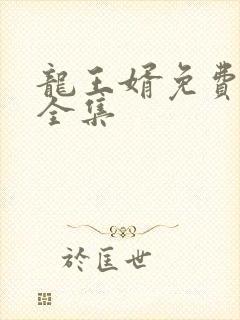 龍王婿免費
全集
於匡世